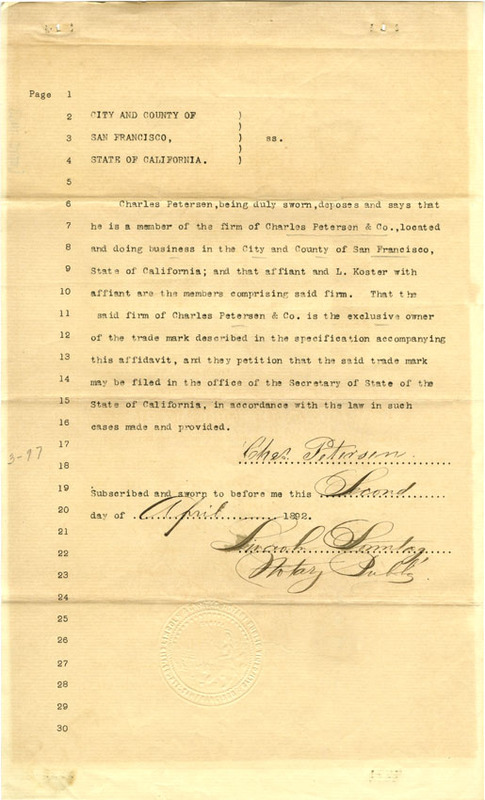 Page 1
2 CITY AND COUNTY OF )
)
3 SAN FRANCISCO, ) ss.
)
4 STATE OF CALIFORNIA. )
5
6 Charles Petersen,being duly sworn,deposes and says that
7 he is a member of the firm of Charles Petersen & Co.,located
8 and doing business in the City and County of San Francisco,
9 State of California; and that affiant and L. Koster with
10 affiant are the members comprising said firm. That the
11 said firm of Charles Petersen & Co. is the exclusive owner
12 of the trade mark described in the specification accompanying
13 this affidavit, and they petition that the said trade mark
14 may be filed in the office of the Secretary of State of the
15 State of California, in accordance with the law in such
16 cases made and provided.
17 Chas. Petersen
3-97
18
19 Subscribed and sworn to before me this Second
20 day of April 1892.
21
22 Lincoln Sonntag
23 Notary Public
24
25
26
27
28
29
30